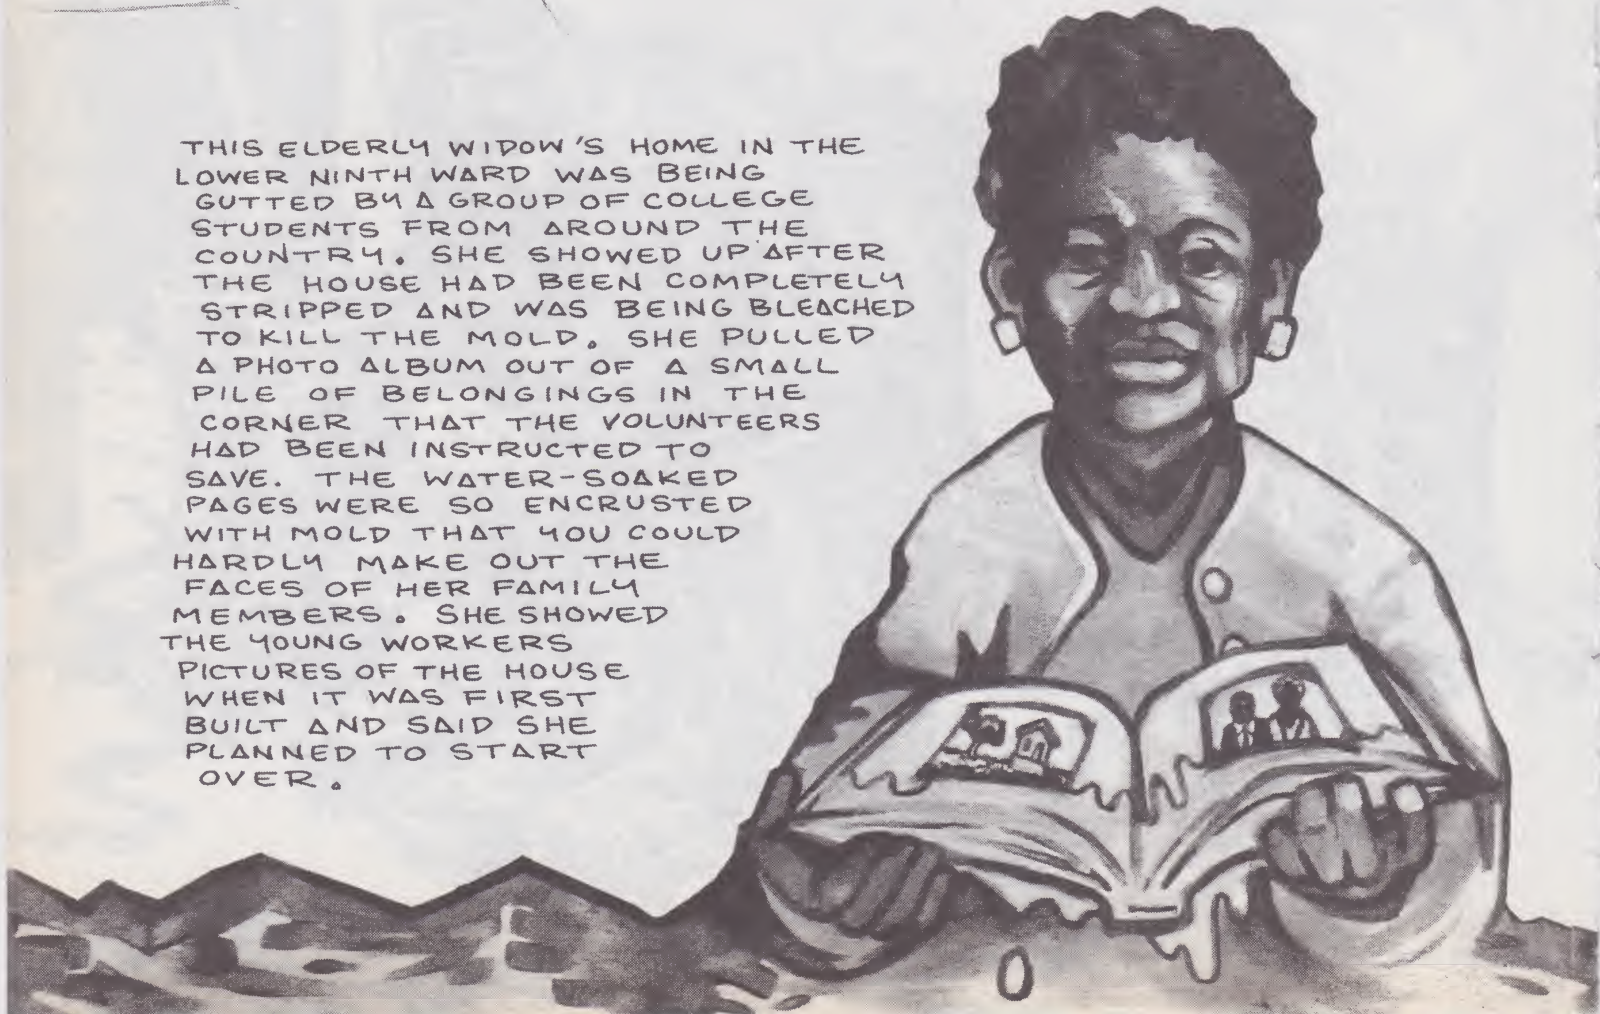 THIS ELDERLY WIDOW'S HOME IN THE
LOWER NINTH WARD WAS BEING
GUTTED BY A GROUP OF COLLEGE
STUDENTS FROM AROUND THE
COUNTRY. SHE SHOWED UP AFTER
THE HOUSE HAD BEEN COMPLETELY
STRIPPED AND WAS BEING BLEACHED
TO KILL THE MOLD. SHE PULLED
A PHOTO ALBUM OUT OF A SMALL
PILE OF BELONGINGS IN THE
CORNER THAT THE VOLUNTEERS
HAD BEEN INSTRUCTED TO
SAVE. THE WATER-SOAKED
PAGES WERE SO ENCRUSTED
WITH MOLD THAT YOU COULD
HARDLY MAKE OUT THE
FACES OF HER FAMILY
MEMBERS. SHE SHOWED
THE YOUNG WORKERS
PICTURES OF THE HOUSE
WHEN IT WAS FIRST
BUILT AND SAID SHE
PLANNED TO START
OVER.